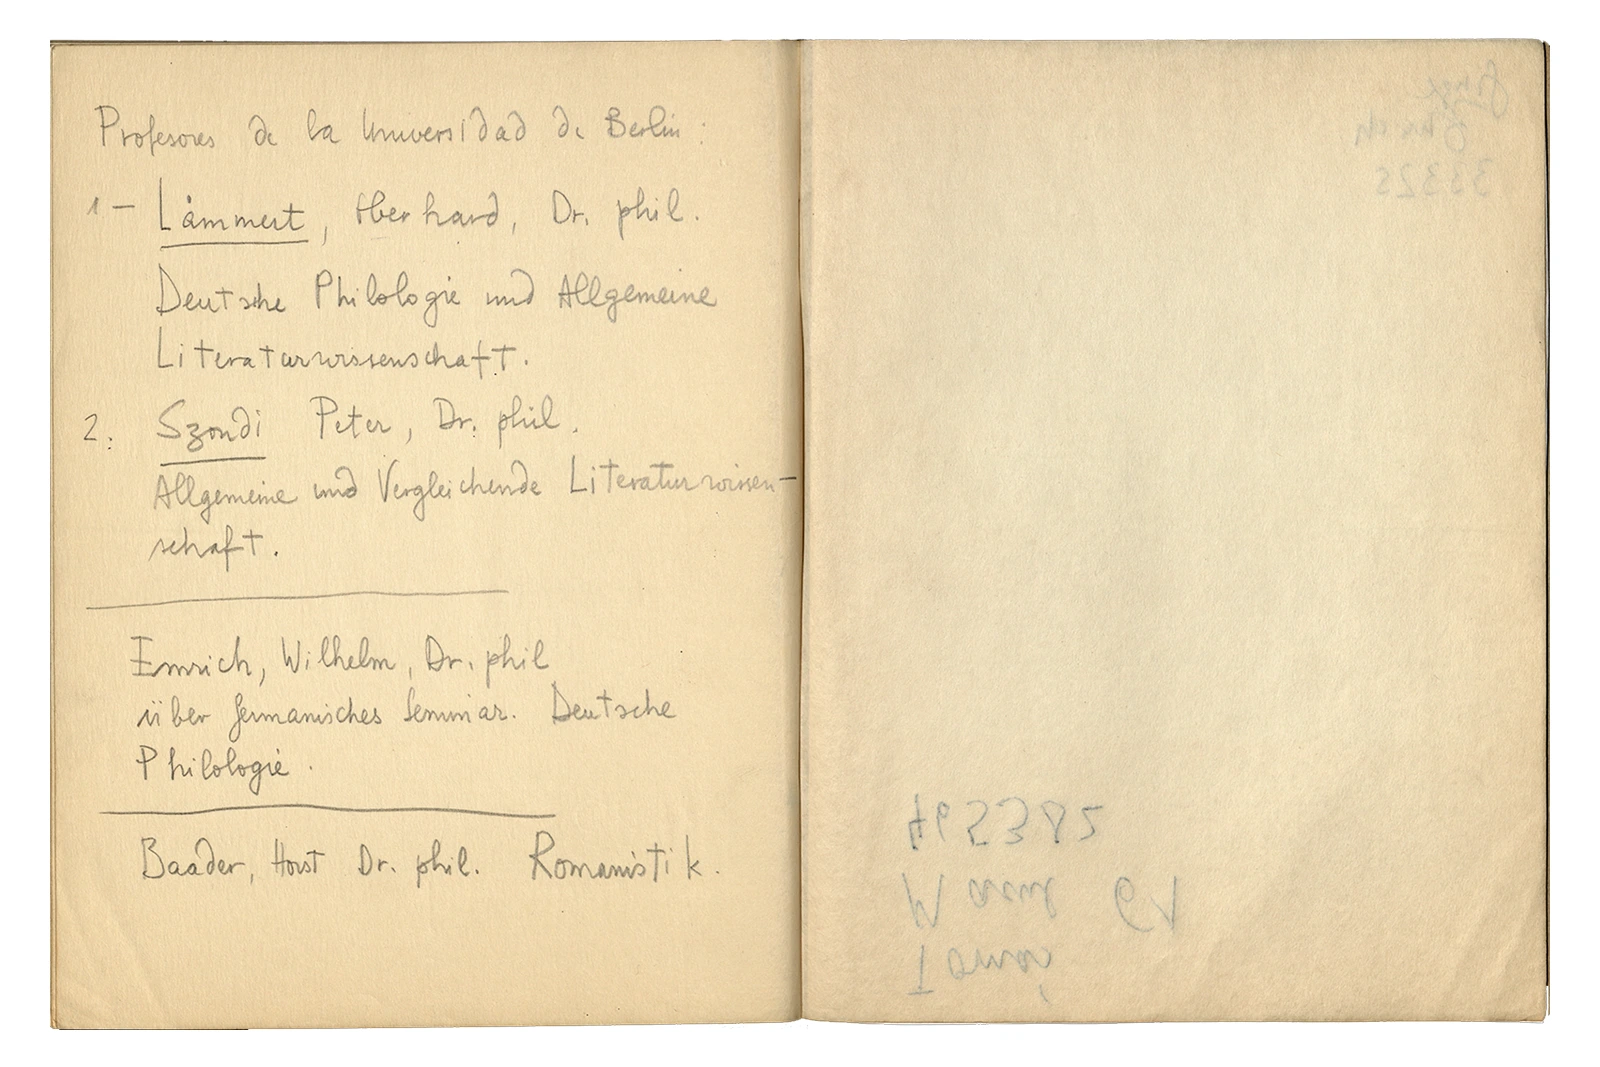 Profesores de la Universidad de Berlin:
1 – Lämmert, Eberhard, Dr. phil.
Deutsche Philologie und Allgemeine
Literaturwissenschaft.
2. Szondi Peter, Dr. phil.
Allgemeine und Vergleichende Literaturwissen-
schaft.
Emrich, Wilhelm, Dr. phil
über Germanisches Seminar. Deutsche
Philologie.
Baader, Horst Dr. phil. Romanistik.
33325
465382
61
Tomás